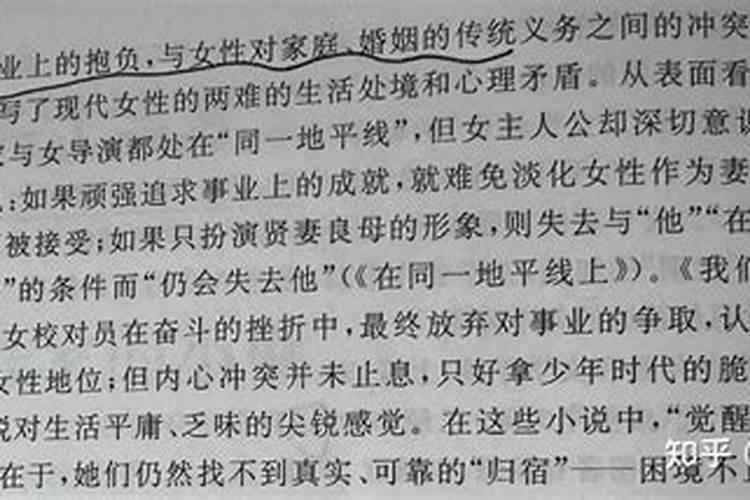 业上的抱负，与女性对家庭、婚姻的传统义务之间的冲突
写了现代女性的两难的生活处境和心理矛盾。从表面看
与女导演都处在“同一地平线”，但女主人公却深切意识
：如果顽强追求事业上的成就，就难免淡化女性作为妻
被接受；如果只扮演贤妻良母的形象，则失去与“他”“在
”的条件而“仍会失去他”（《在同一地平线上》）。《我们
女校对员在奋斗的挫折中，最终放弃对事业的争取，认
女性地位；但内心冲突并未止息，只好拿少年时代的脆
对生活平庸、乏味的尖锐感觉。在这些小说中，“觉醒
在于，她们仍然找不到真实、可靠的“归宿”——困境不
知乎